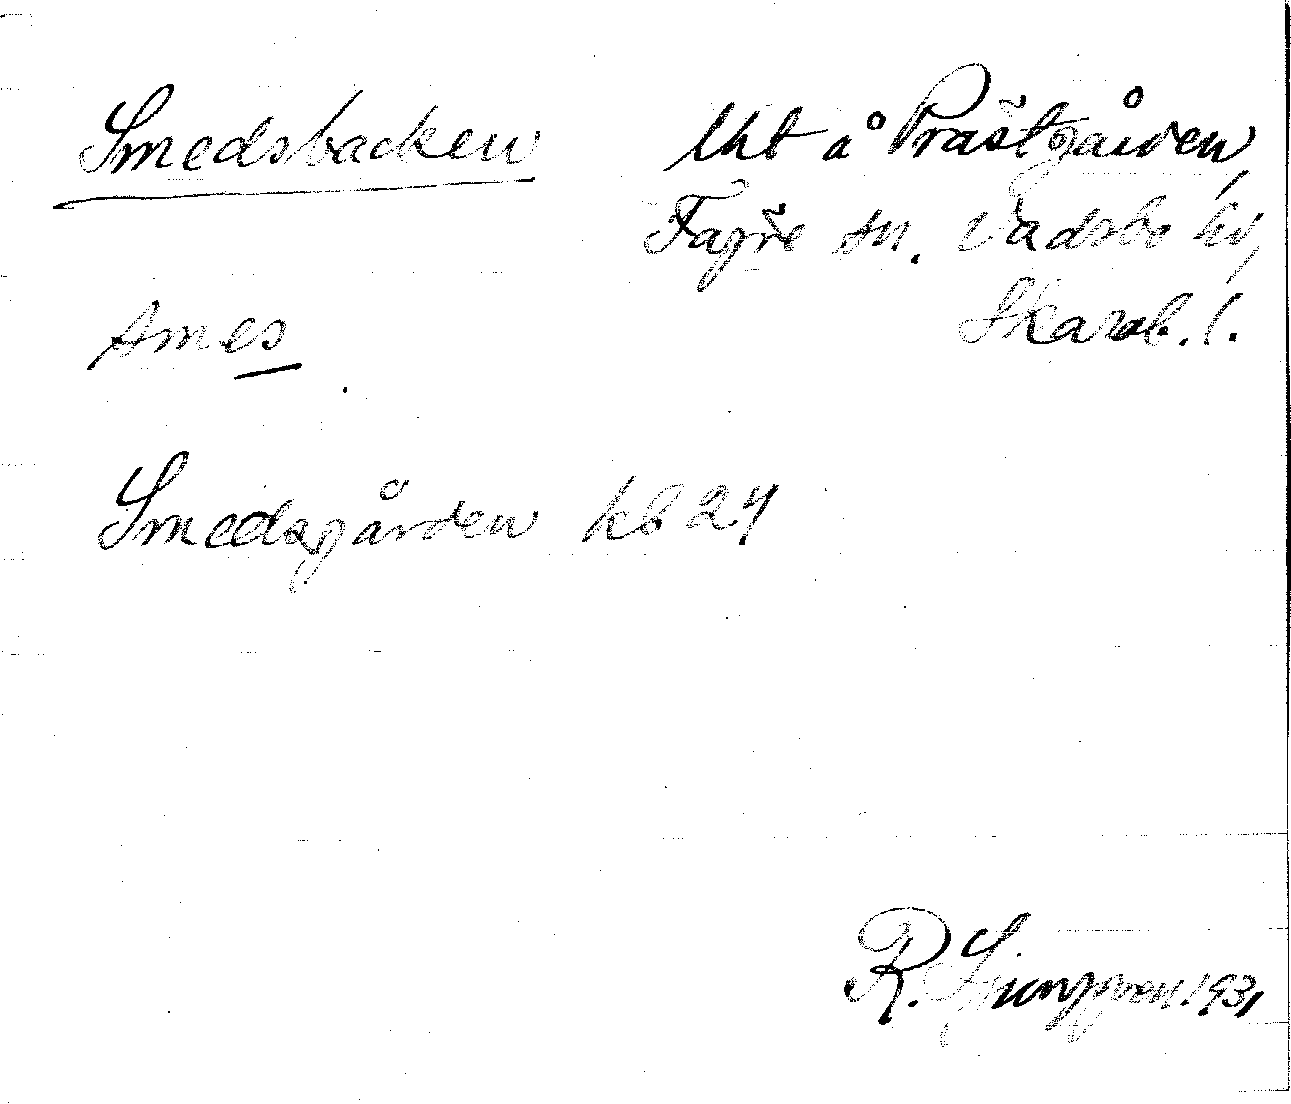 Smedsbacken
Uht å Prästgården,
Fagre sn. Vadsbo hd,
Skarab. l.
smes
Smedsgården kb 24
R. Ljunggren. 1931